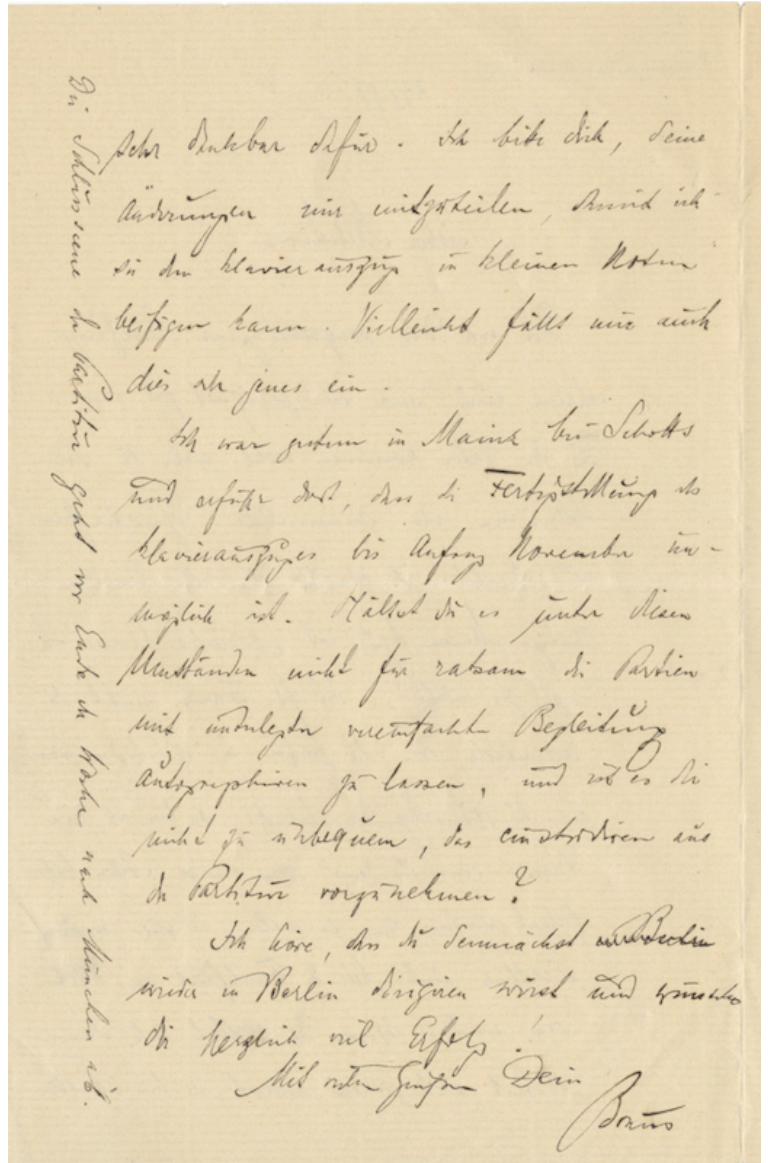 sehr dankbar dafür. Ich bitte dich, deine
Änderungen mir mitzuteilen, damit ich
sie dem Klavierauszug in kleinen Noten
beifügen kann. Vielleicht fällt mir auch
dies oder jenes ein.
Ich war gestern in Mainz bei Schotts
und erfuhr dort, dass die Fertigstellung des
Klavierauszuges bis Anfang November un-
möglich ist. Hältst du es unter diesen
Umständen nicht für ratsam die Partien
mit unterlegter vereinfachter Begleitung
autographiren zu lassen, und ist es dir
nicht zu unbequem, das einstudiren aus
der Partitur vorzunehmen?
Ich höre, dass du demnächst
wieder in Berlin dirigiren wirst und wünsche
dir herzlich viel Erfolg!
Mit Grüßen Dein
Die Schlussscene der Partitur geht vor Ende der Woche nach München ab.